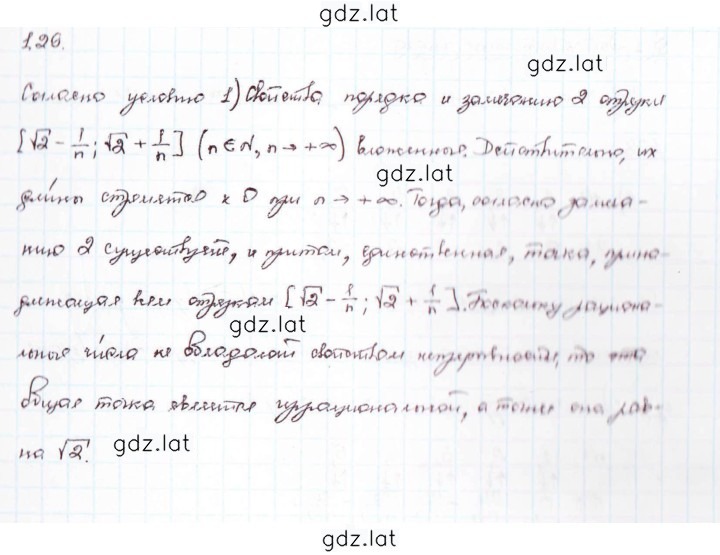 gdz.lat
1.26.
gdz.lat
Согласно условию 1) Свойства порядка и замечанию 2 отрезки
[√2 - 1/n; √2 + 1/n] (n ∈ N, n → +∞) вложенные. Действительно, их
gdz.lat
длины стремятся к 0 при n → +∞. Тогда, согласно замеча-
нию 2 существует, и притом, единственная, точка, прина-
длежащая всем отрезкам [√2 - 1/n; √2 + 1/n]. Поскольку рациона-
gdz.lat
льные числа не обладают свойством непрерывности, то эта
общая точка является иррациональной, а точнее она рав-
на √2.
gdz.lat
gdz.lat